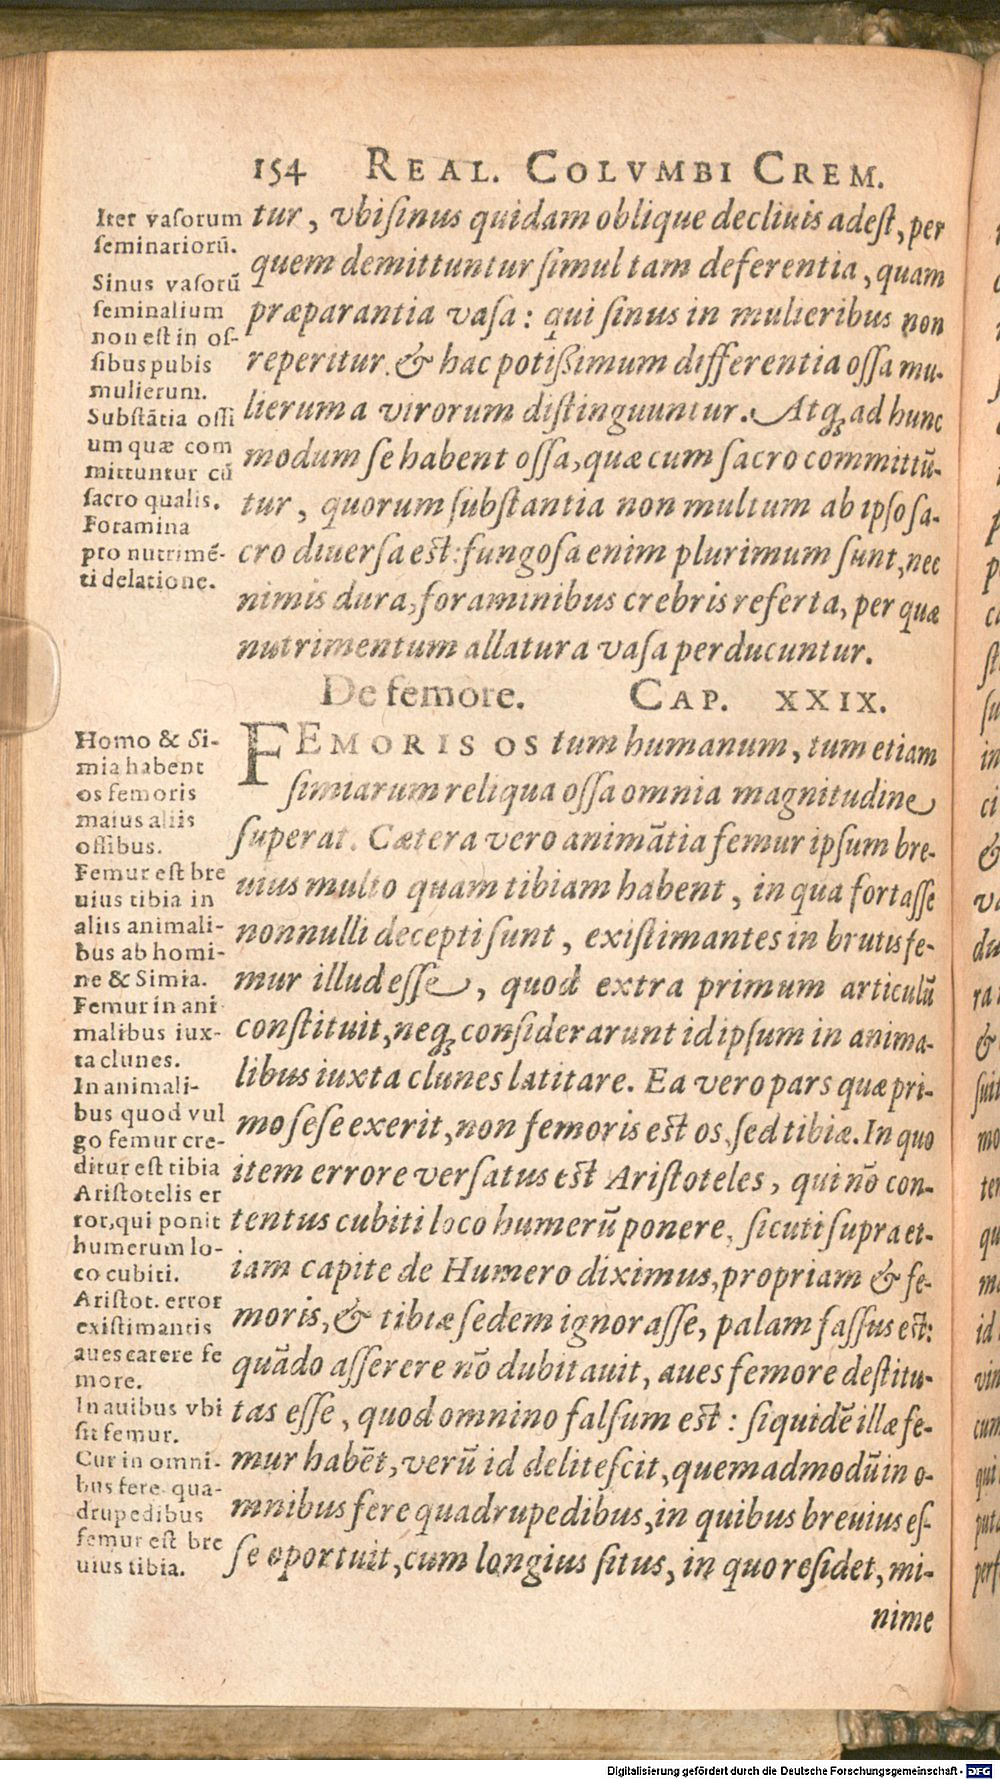 154 REAL. COLVMBI CREM.
Iter vasorum
seminariorū.
Sinus vasorū
seminalium
non est in os-
sibus pubis
mulierum.
Substātia ossi
um quæ com
mittuntur cū
sacro qualis.
Foramina
pro nutrimē-
ti delatione.
tur, vbi sinus quidam oblique decliuis adest, per
quem demittuntur simul tam deferentia, quam
præparantia vasa: qui sinus in mulieribus non
reperitur. & hac potißimum differentia ossa mu-
lierum a virorum distinguuntur. Atq; ad hunc
modum se habent ossa, quæ cum sacro committū-
tur, quorum substantia non multum ab ipso sa-
cro diuersa est: fungosa enim plurimum sunt, nec
nimis dura, foraminibus crebris referta, per quæ
nutrimentum allatura vasa perducuntur.
De femore. CAP. XXIX.
Homo & Si-
mia habent
os femoris
maius aliis
ossibus.
Femur est bre
uius tibia in
aliis animali-
bus ab homi-
ne & Simia.
Femur in ani
malibus iux-
ta clunes.
In animali-
bus quod vul
go femur cre-
ditur est tibia
Aristotelis er
ror, qui ponit
humerum lo-
co cubiti.
Aristot. error
existimantis
aues carere fe
more.
In auibus vbi
sit femur.
Cur in omni-
bus fere qua-
drupedibus
femur est bre
uius tibia.
FEMORIS OS tum humanum, tum etiam
simiarum reliqua ossa omnia magnitudine
superat. Cætera vero animātia femur ipsum bre-
uius multo quam tibiam habent, in qua fortasse
nonnulli decepti sunt, existimantes in brutis fe-
mur illud esse, quod extra primum articulū
constituit, neq; considerarunt id ipsum in anima-
libus iuxta clunes latitare. Ea vero pars quæ pri-
mo sese exerit, non femoris est os, sed tibiæ. In quo
item errore versatus est Aristoteles, qui nō con-
tentus cubiti loco humerū ponere, sicuti supra et-
iam capite de Humero diximus, propriam & fe-
moris, & tibiæ sedem ignorasse, palam fassus est:
quādo asserere nō dubitauit, aues femore destitu-
tas esse, quod omnino falsum est: siquidē illæ fe-
mur habēt, verū id delitescit, quemadmodū in o-
mnibus fere quadrupedibus, in quibus breuius es-
se oportuit, cum longius situs, in quo residet, mi-
nime
Digitalisierung gefördert durch die Deutsche Forschungsgemeinschaft - DFG